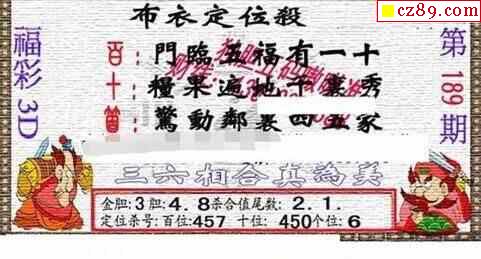 cz89.com
布衣定位殺
福彩3D
第189期
百：門臨五福有一十
十：糧果遍地千裏秀
個：驚動鄰裏四五家
三六相合真為美
金胆:3 胆:4.8杀合值尾数: 2.1.
定位杀号:百位:457 十位: 450个位:6